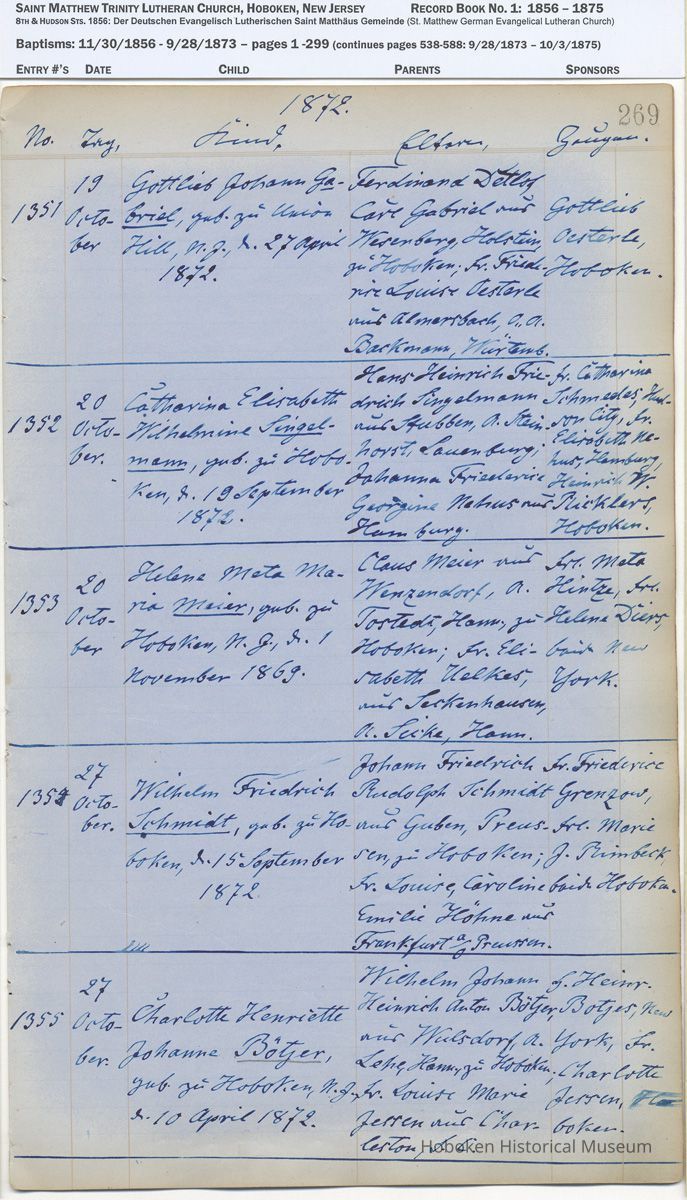 SAINT MATTHEW TRINITY LUTHERAN CHURCH, HOBOKEN, NEW JERSEY RECORD BOOK NO. 1: 1856 – 1875
8TH & HUDSON STS. 1856: Der Deutschen Evangelisch Lutherischen Saint Matthäus Gemeinde (St. Matthew German Evangelical Lutheran Church)
Baptisms: 11/30/1856 - 9/28/1873 – pages 1 -299 (continues pages 538-588: 9/28/1873 – 10/3/1875)
ENTRY #'S DATE CHILD PARENTS SPONSORS
1872.
269
No. Tag, Kind, Eltern, Zeugen.
1351
19
Octo-
ber
Gottlieb Johann Ga-
briel, geb. zu Union
Hill, N.J., d. 27 April
1872.
Ferdinand Detlof
Carl Gabriel aus
Wesenberg, Holstein,
zu Hoboken; Fr. Friede-
rice Louise Oesterle
aus Almersbach, O.A.
Backmann, Würtemb.
Gottlieb
Oesterle,
Hoboken.
1352
20
Octo-
ber.
Catharina Elisabeth
Wilhelmine Singel-
mann, geb. zu Hobo-
ken, d. 19 September
1872.
Hans Heinrich Frie-
drich Singelmann
aus Stubben, A. Stein-
horst, Lauenburg;
Johanna Friederice
Georgine Nehus aus
Hamburg.
Fr. Catharina
Schmedes, Hud-
son City, Fr.
Elisabeth Ne-
hus, Hamburg,
Heinrich W.
Ricklers,
Hoboken.
1353
20
Octo-
ber
Helene Meta Ma-
ria Meier, geb. zu
Hoboken, N.J., d. 1
November 1869.
Claus Meier aus
Wenzendorf, A.
Tostedt, Hann., zu
Hoboken; Fr. Eli-
sabeth Uelkes,
aus Seckenhausen,
A. Seike, Hann.
Frl. Meta
Hintze, Frl.
Helene Diers,
beide New
York.
1354
27
Octo-
ber.
Wilhelm Friedrich
Schmidt, geb. zu Ho-
boken, d. 15 September
1872
Johann Friedrich
Rudolph Schmidt
aus Guben, Preus-
sen, zu Hoboken;
Fr. Louise, Caroline
Emilie Höhne aus
Frankfurt a/O Preussen.
Fr. Friederice
Grenzow,
Frl. Marie
J. Rimbeck,
beide Hoboken.
1355
27
Octo-
ber.
Charlotte Henriette
Johanne Bötjer,
geb. zu Hoboken, N.J.,
d. 10 April 1872.
Wilhelm Johann
Heinrich Anton Bötjer,
aus Wulsdorf, A.
Lehe, Hann., zu Hoboken;
Fr. Louise Marie
Jessen aus Char-
leston, S.C.
J. Heinr.
Botjes, New
York, Fr.
Charlotte
Jessen, Ho-
boken.
Hoboken Historical Museum